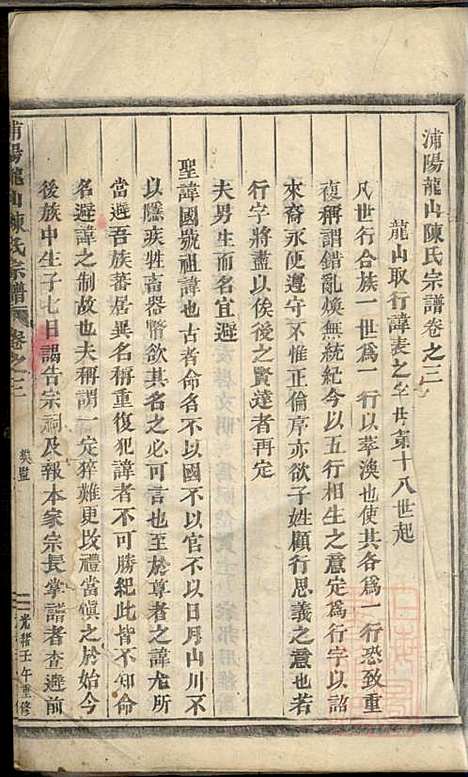 浦陽龍山陳氏宗譜卷之三
龍山取行諱表之字世第十八世起
凡世行合族一世爲一行以萃渙也使其各爲一行恐致重
複稱謂錯亂煥無統紀今以五行相生之意定爲行字以詔
來裔永便遵守不惟正倫序亦欲子姓顧行思義之意也若
行字將盡以俟後之賢達者再定
夫男生而名宜避
聖諱國號祖諱也古者命名不以國不以官不以日月山川不
以隱疾牲畜器幣欲其名之必可言也至於尊者之諱尤所
當避吾族蕃居異名稱重復犯諱者不可勝紀此皆不知命
名避諱之制故也夫稱謂一定猝難更改禮當愼之於始今
後族中生子七日謁告宗祠及報本家宗長掌譜者查避前
浦陽龍山陳氏宗譜
卷之三
奬監
光緒壬午重修